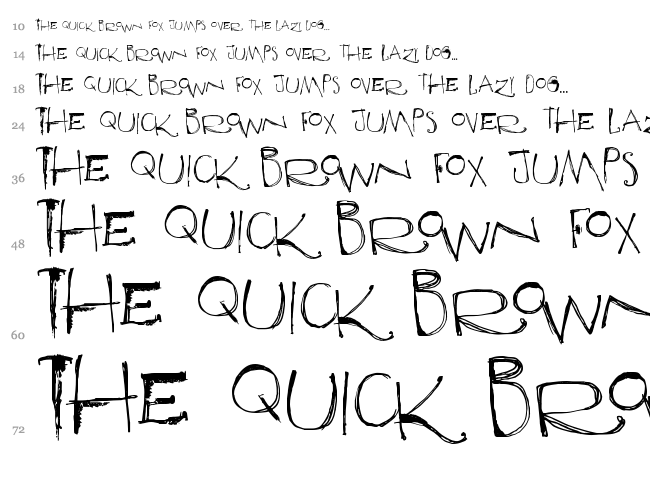 10 THE QUICK BROWN FOX JUMPS OVER THE LAZY DOG...
14 THE QUICK BROWN FOX JUMPS OVER THE LAZY DOG...
18 THE QUICK BROWN FOX JUMPS OVER THE LAZY DOG...
24 THE QUICK BROWN FOX JUMPS OVER THE LAZ
36 THE QUICK BROWN FOX JUMPS
48 THE QUICK BROWN FOX
60 THE QUICK BROWN
72 THE QUICK BRO